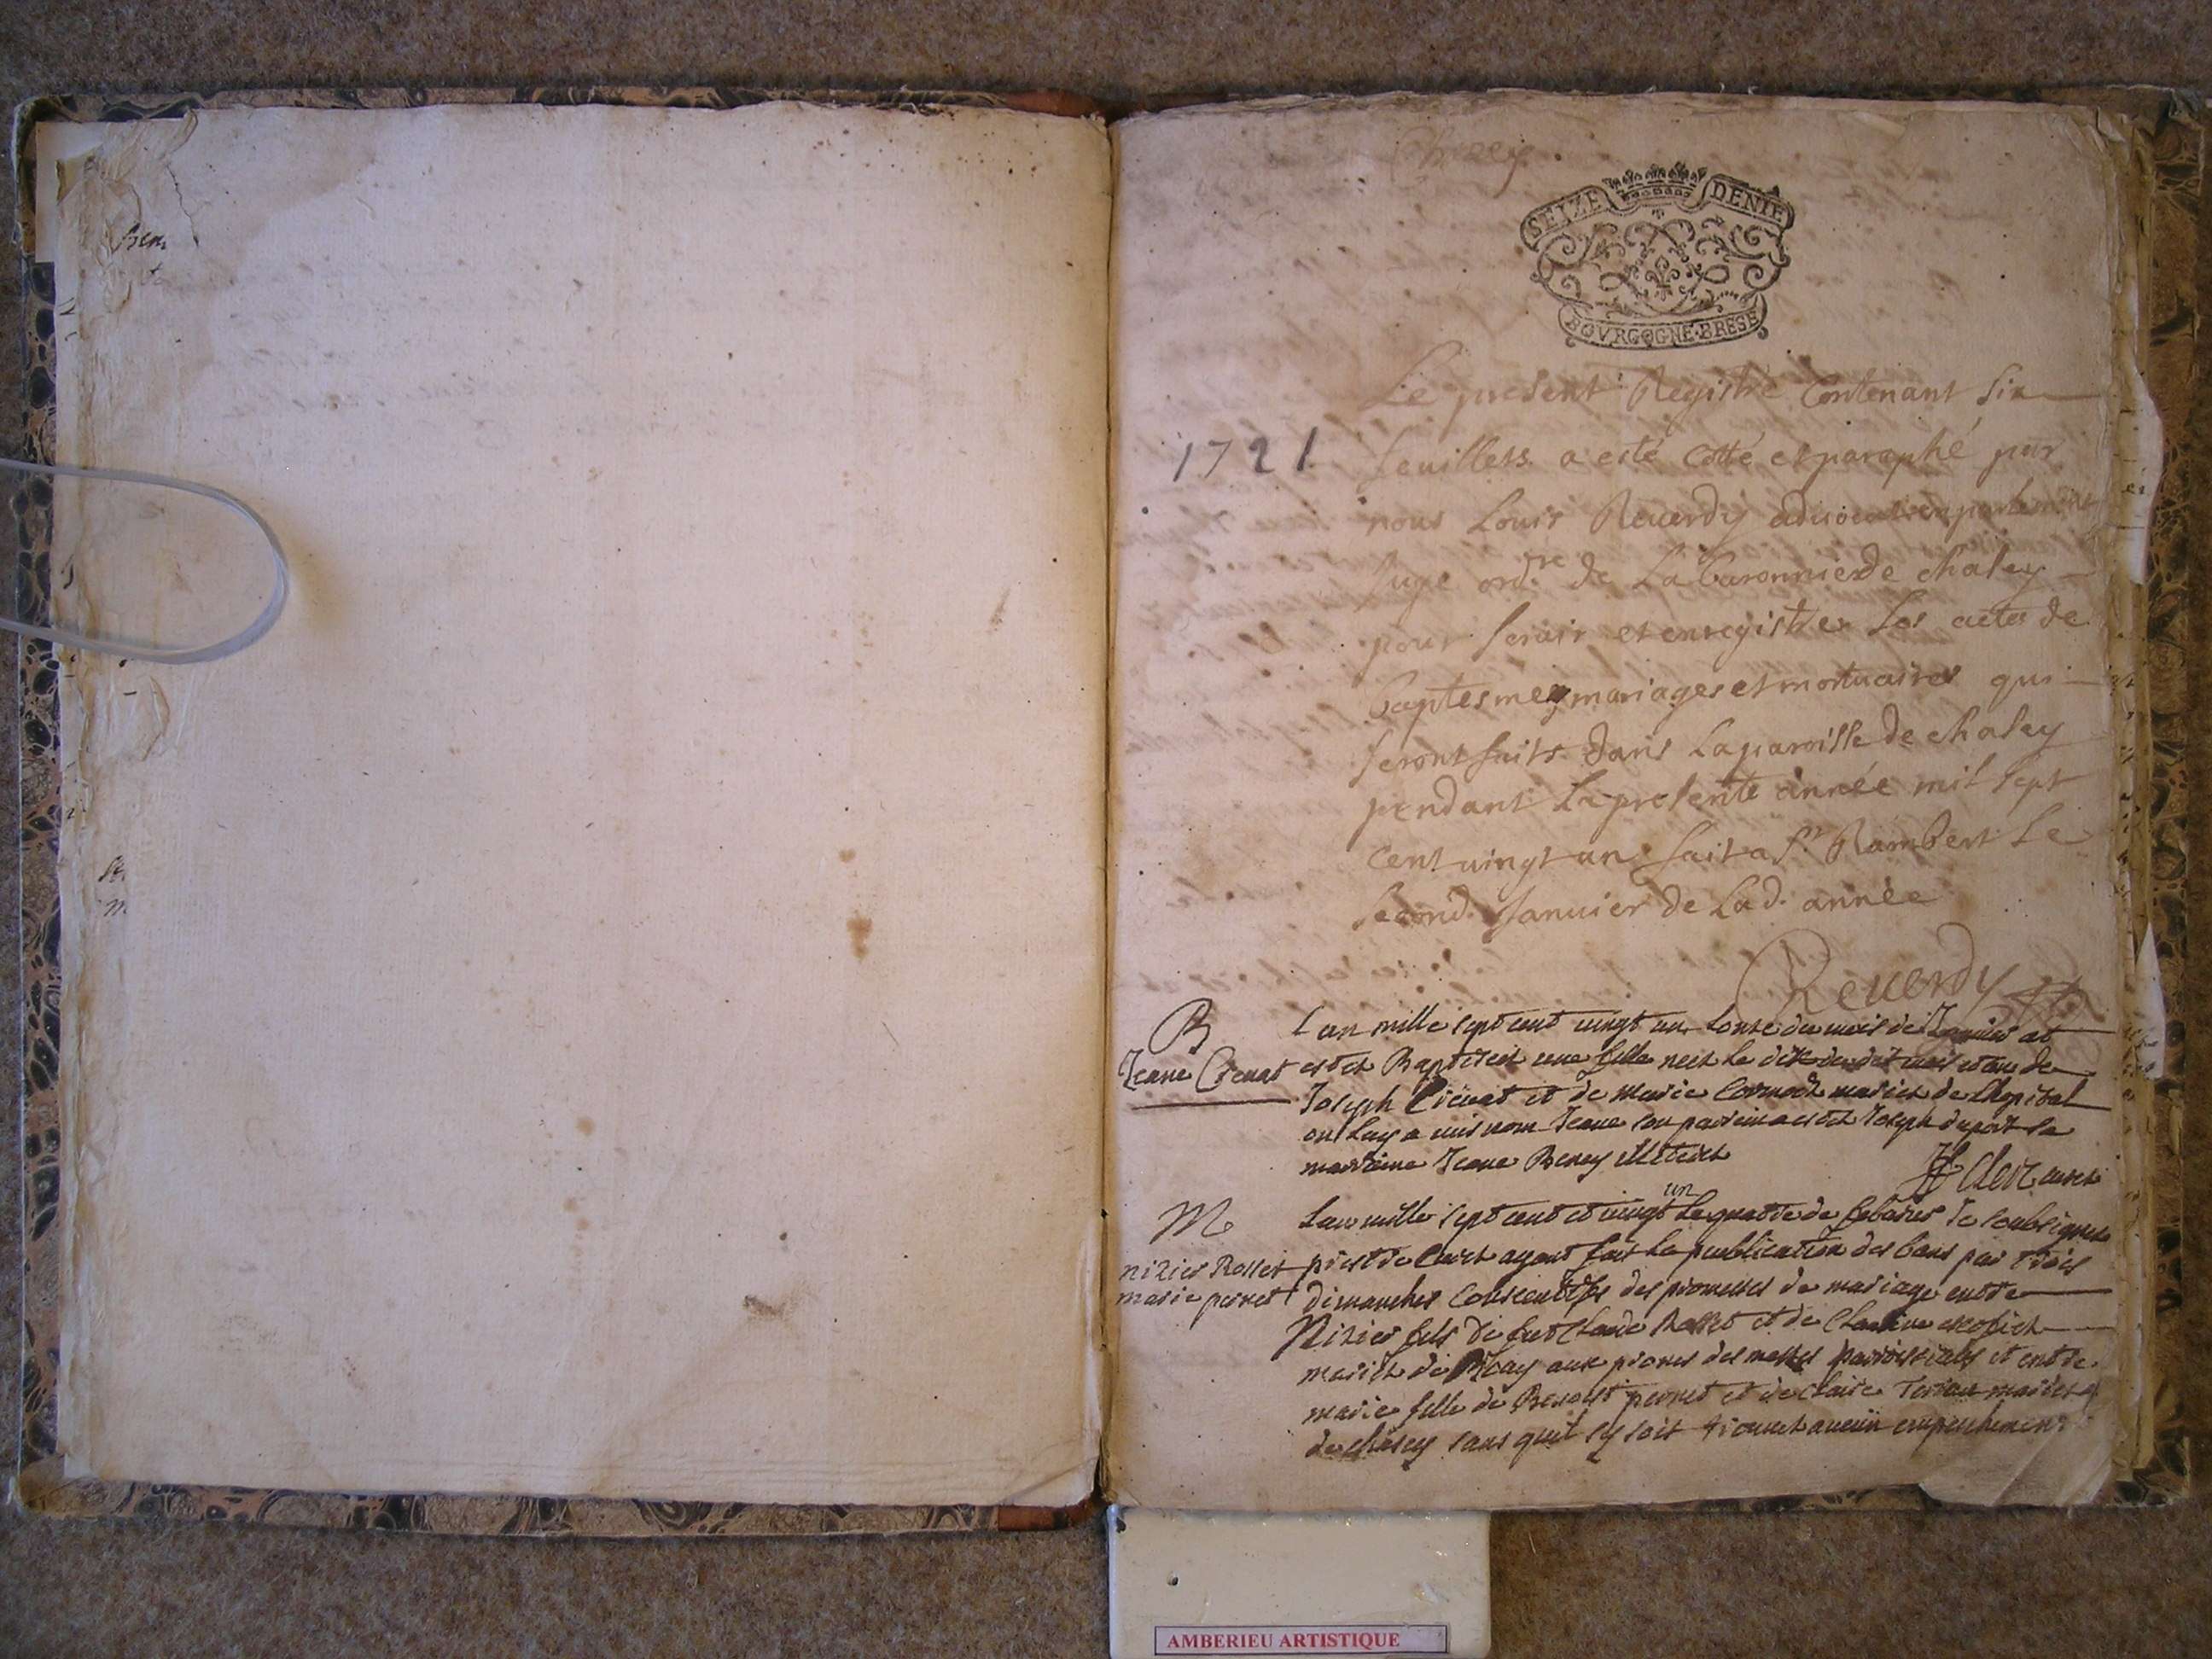 Chaley
SEIZE DENIE
BOVRGOGNE·BRESE
Le present Registre Contenant Six
1721
feuillets a esté Cotté et paraphé par
nous Louis Reuerdy aduocat en parlement
Juge ordre de La baronnie de Chaley
pour Seruir et enregistrer Les actes de
baptesmes mariages et mortuaires qui
Seront faits dans La paroisse de Chaley
pendant La presente année mil Sept
Cent uingt un fait a St Rambert Le
Second Januier de Lad. année
Reuerdy
B
Jeane Crenat
Lan mille sept cent uingt un Lonze du mois de Januier at
estet Baptiset une fille neet Le dix du det mois et an de
Joseph Creuat et de marie mariet de Lhopital
on luy a mis nom Jeane son parrain a estet Joseph dupòrt sa
marraine Jeane Beney illiteret
Clerc curet
M
nizier Rosset
marie perret
Lan mille sept cent et uingt un Le quatre de febvrier Je soubsignet
prestre Curet ayant fait La publication des bans par trois
dimanches Consecutifs des promesses de mariage entre
Nizier fils de feut Claude Rosset et de
mariet de aux prones des messes parroissiales et entre
marie fille de Benoist perret et de Claire mariet
de chaley sans quil sy soit trouuet aucun empeschement
AMBERIEU ARTISTIQUE